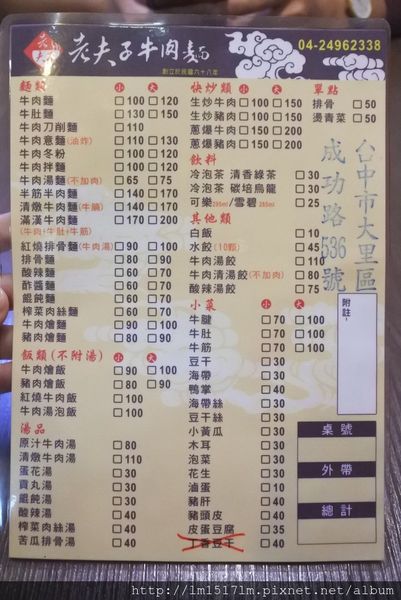 老夫子牛肉麵
創立於民國六十八年
04-24962338
麵類 小 大
牛肉麵 □100 □120
牛肚麵 □130 □150
牛肉刀削麵 □110
牛肉意麵(油炸) □130
牛肉冬粉 □100
牛肉拌麵 □100
牛肉湯麵(不加肉) □65 □75
半筋半肉麵 □140 □170
清燉牛肉麵(牛腩) □140 □170
滿漢牛肉麵 □170 □200
(牛肉+牛肚+牛筋)
紅燒排骨麵(牛肉湯) □90 □100
排骨麵 □80 □90
酸辣麵 □50 □60
酢醬麵 □50 □60
餛飩麵 □50 □60
榨菜肉絲麵 □50 □60
牛肉燴麵 □90 □100
豬肉燴麵 □80 □90
飯類(不附湯) 小 大
牛肉燴飯 □90 □100
豬肉燴飯 □80 □90
紅燒牛肉飯 □100
牛肉湯泡飯 □100
湯品
原汁牛肉湯 □80
清燉牛肉湯 □110
蛋花湯 □30
貢丸湯 □30
餛飩湯 □30
酸辣湯 □40
榨菜肉絲湯 □40
苦瓜排骨湯 □40
快炒類 小 大
生炒牛肉 □100 □150
生炒豬肉 □100 □150
蔥爆牛肉 □150 □200
蔥爆豬肉 □150 □200
飲料
冷泡茶 清香綠茶 □30
冷泡茶 碳培烏龍 □30
可樂295ml/雪碧265ml □25
其他類
白飯 □10
水餃(10顆) □45
牛肉湯餃 □110
牛肉清湯餃(不加肉) □80
酸辣湯餃 □75
小菜 小 大
牛腱 □70 □100
牛肚 □70 □100
牛筋 □70 □100
豆干 □30
海帶 □30
鴨掌 □40
海帶絲 □30
豆干絲 □30
小黃瓜 □30
木耳 □30
泡菜 □30
花生 □30
滷蛋 □10
豬肝 □40
豬頭皮 □40
皮蛋豆腐 □35
丁香豆干 □40
單點
排骨 □50
燙青菜 □50
台中市大里區
成功路536號
附註:
桌號
外帶
總計
http://lm1517lm.pixnet.net/album